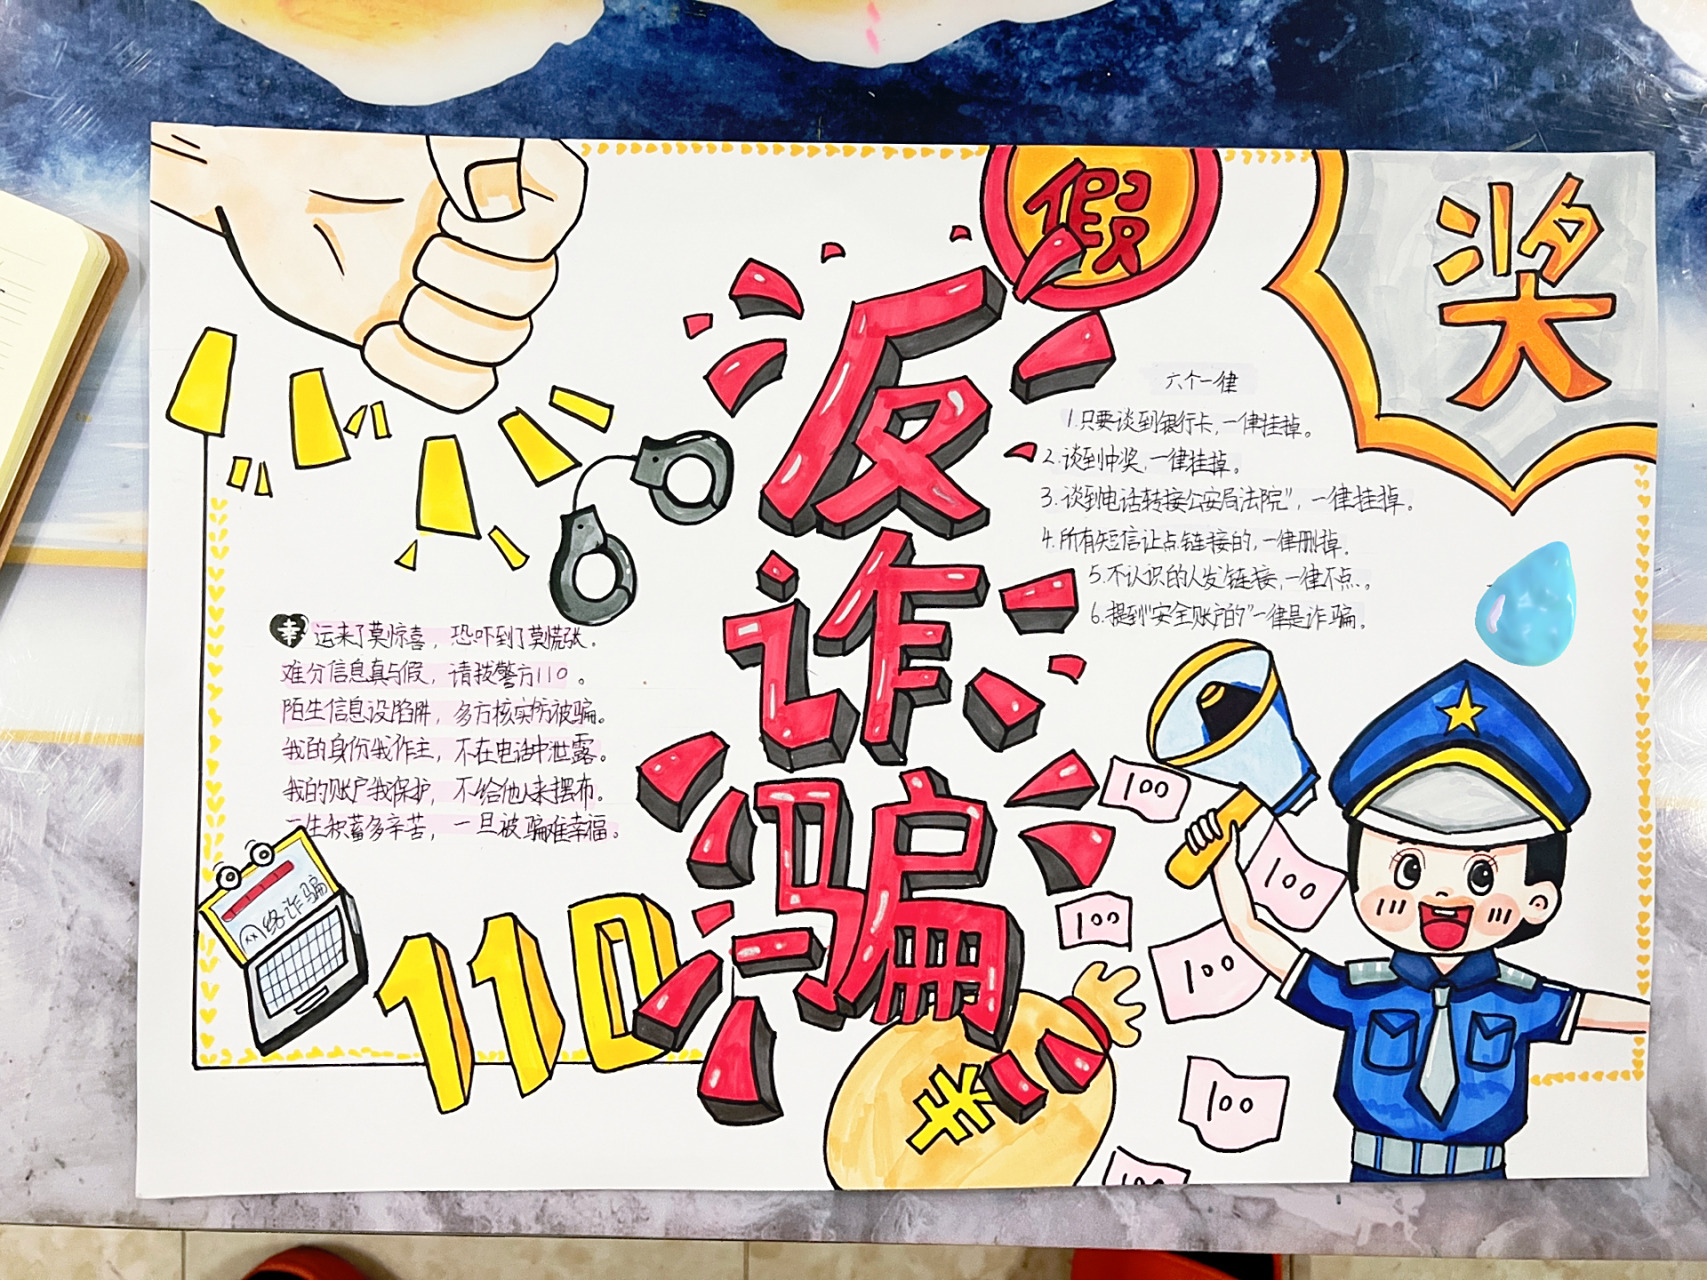 假
奖
反
诈
骗
六个一律
1.只要谈到银行卡,一律挂掉。
2.谈到中奖,一律挂掉。
3.谈到电话转接公安局法院”,一律挂掉。
4.所有短信让点链接的,一律删掉。
5.不认识的人发链接,一律不点。
6.提到“安全账户的”一律是诈骗。
幸运来了莫惊喜,恐吓到了莫慌张。
难分信息真与假,请拨警方110。
陌生信息设陷阱,多方核实防被骗。
我的身份我作主,不在电话中泄露。
我的账户我保护,不给他人来摆布。
一生积蓄多辛苦,一旦被骗难幸福。
网络诈骗
110
100
100
100
100
100
100